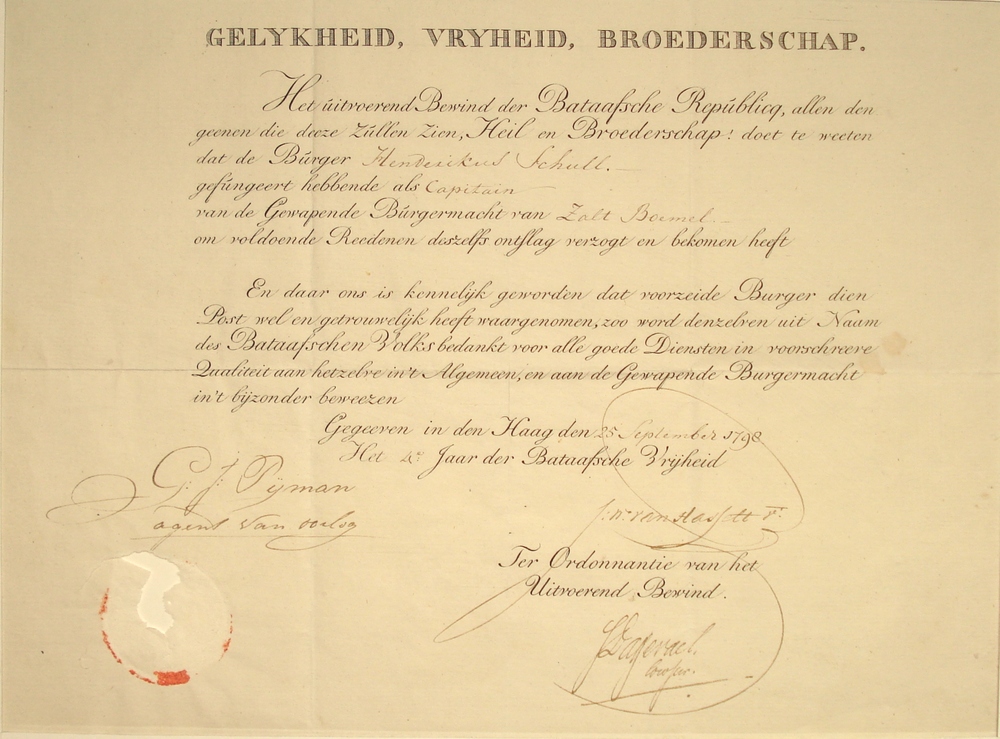 GELYKHEID, VRYHEID, BROEDERSCHAP.
Het úitvoerend Bewind der Bataafsche Repúblicq, allen den
geenen die deeze Zúllen Zien, Heil en Broederschap! doet te weeten
dat de Búrger Henderikus Schull.
gefúngeert hebbende als Capitain
van de Gewapende Búrgermacht van Zalt Boemel.
om voldoende Reedenen deszelfs ontslag verzogt en bekomen heeft
En daar ons is kennelijk geworden dat voorzeide Burger dien
Post wel en getrouwelijk heeft waargenomen, zoo word denzelven uit Naam
des Bataafschen Volks bedankt voor alle goede Diensten in voorschreere
Qualiteit aan hetzelve in't Algemeen, en aan de Gewapende Burgermacht
in't bijzonder beweezen
Gegeeven in den Haag den 25 September 1798
Het 4e Jaar der Bataafsche Vrijheid
G. J. Pijman
agent van oorlog
van Hasselt
Ter Ordonnantie van het
Uitvoerend Bewind.